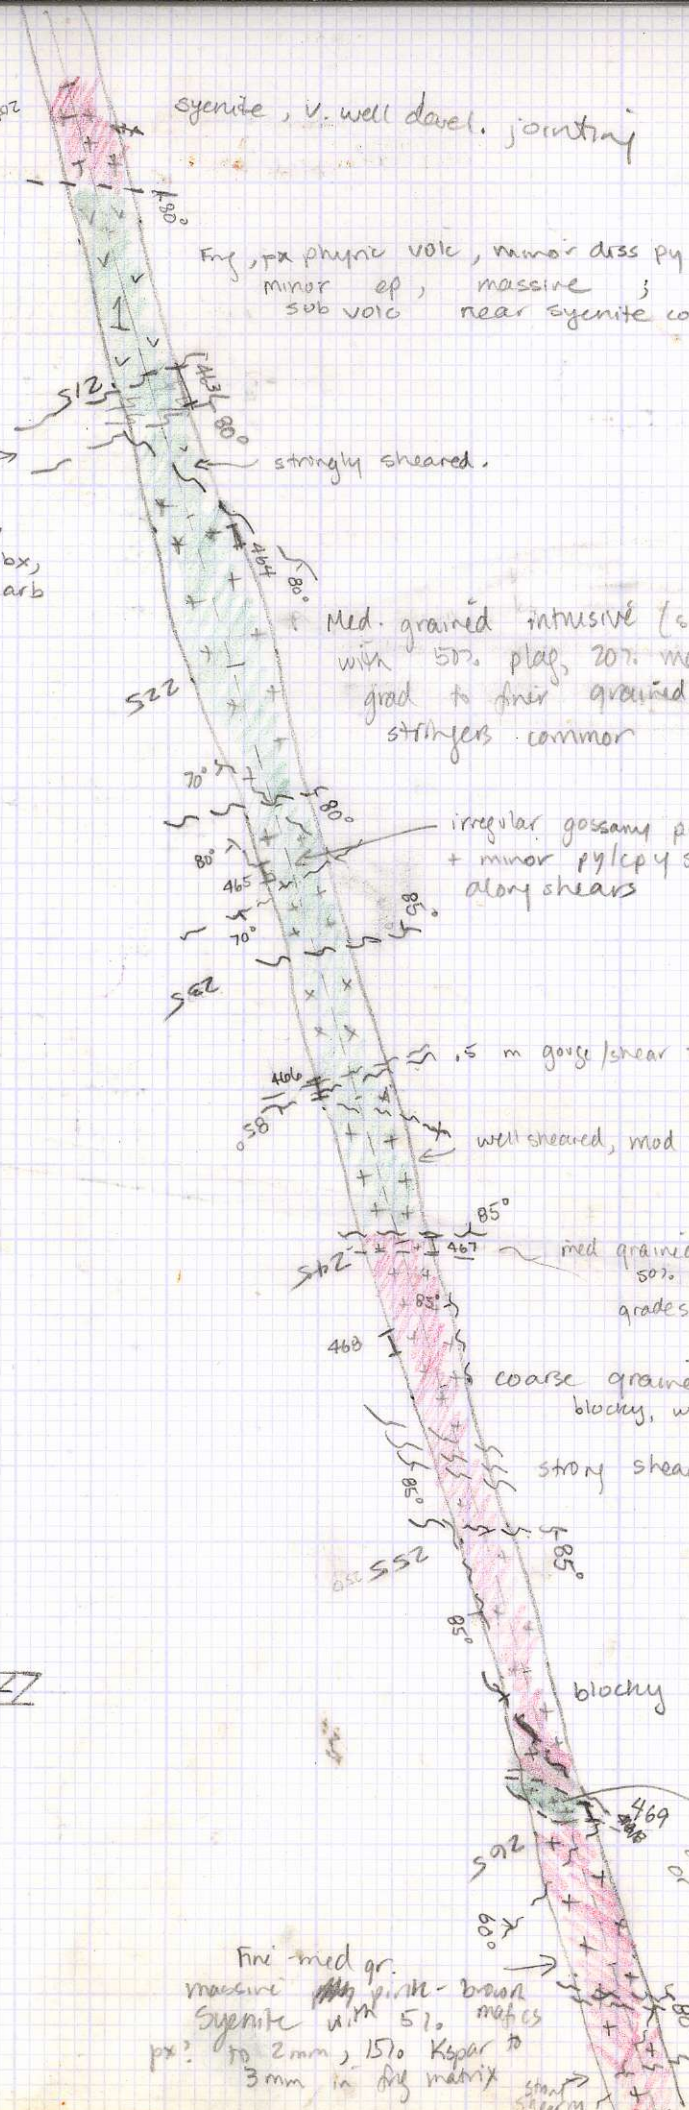 syenite, v. well devel. jointing
80°
Fng, px phyric volc, minor diss py
minor ep, massive ;
sub volc near syenite co
463
512
80°
strongly sheared.
464
80°
bx,
arb
Med. grained intrusive (s
with 50% plag, 20% m
grad to finer grained
stringers common
522
70°
80°
irregular gossany p
+ minor py/cpy s
along shears
80°
465
70°
85°
535
.5 m gouge/shear
466
85°
well sheared, mod
85°
467
med graine
50%
grades
545
85°
468
coarse graine
blocky, w
strong shea
85°
555
550
85°
85°
blocky
469
565
60°
80
Fine-med gr.
massive pink-brown
Syenite with 5% mafics
px? to 2mm, 15% Kspar to
3mm in fng matrix